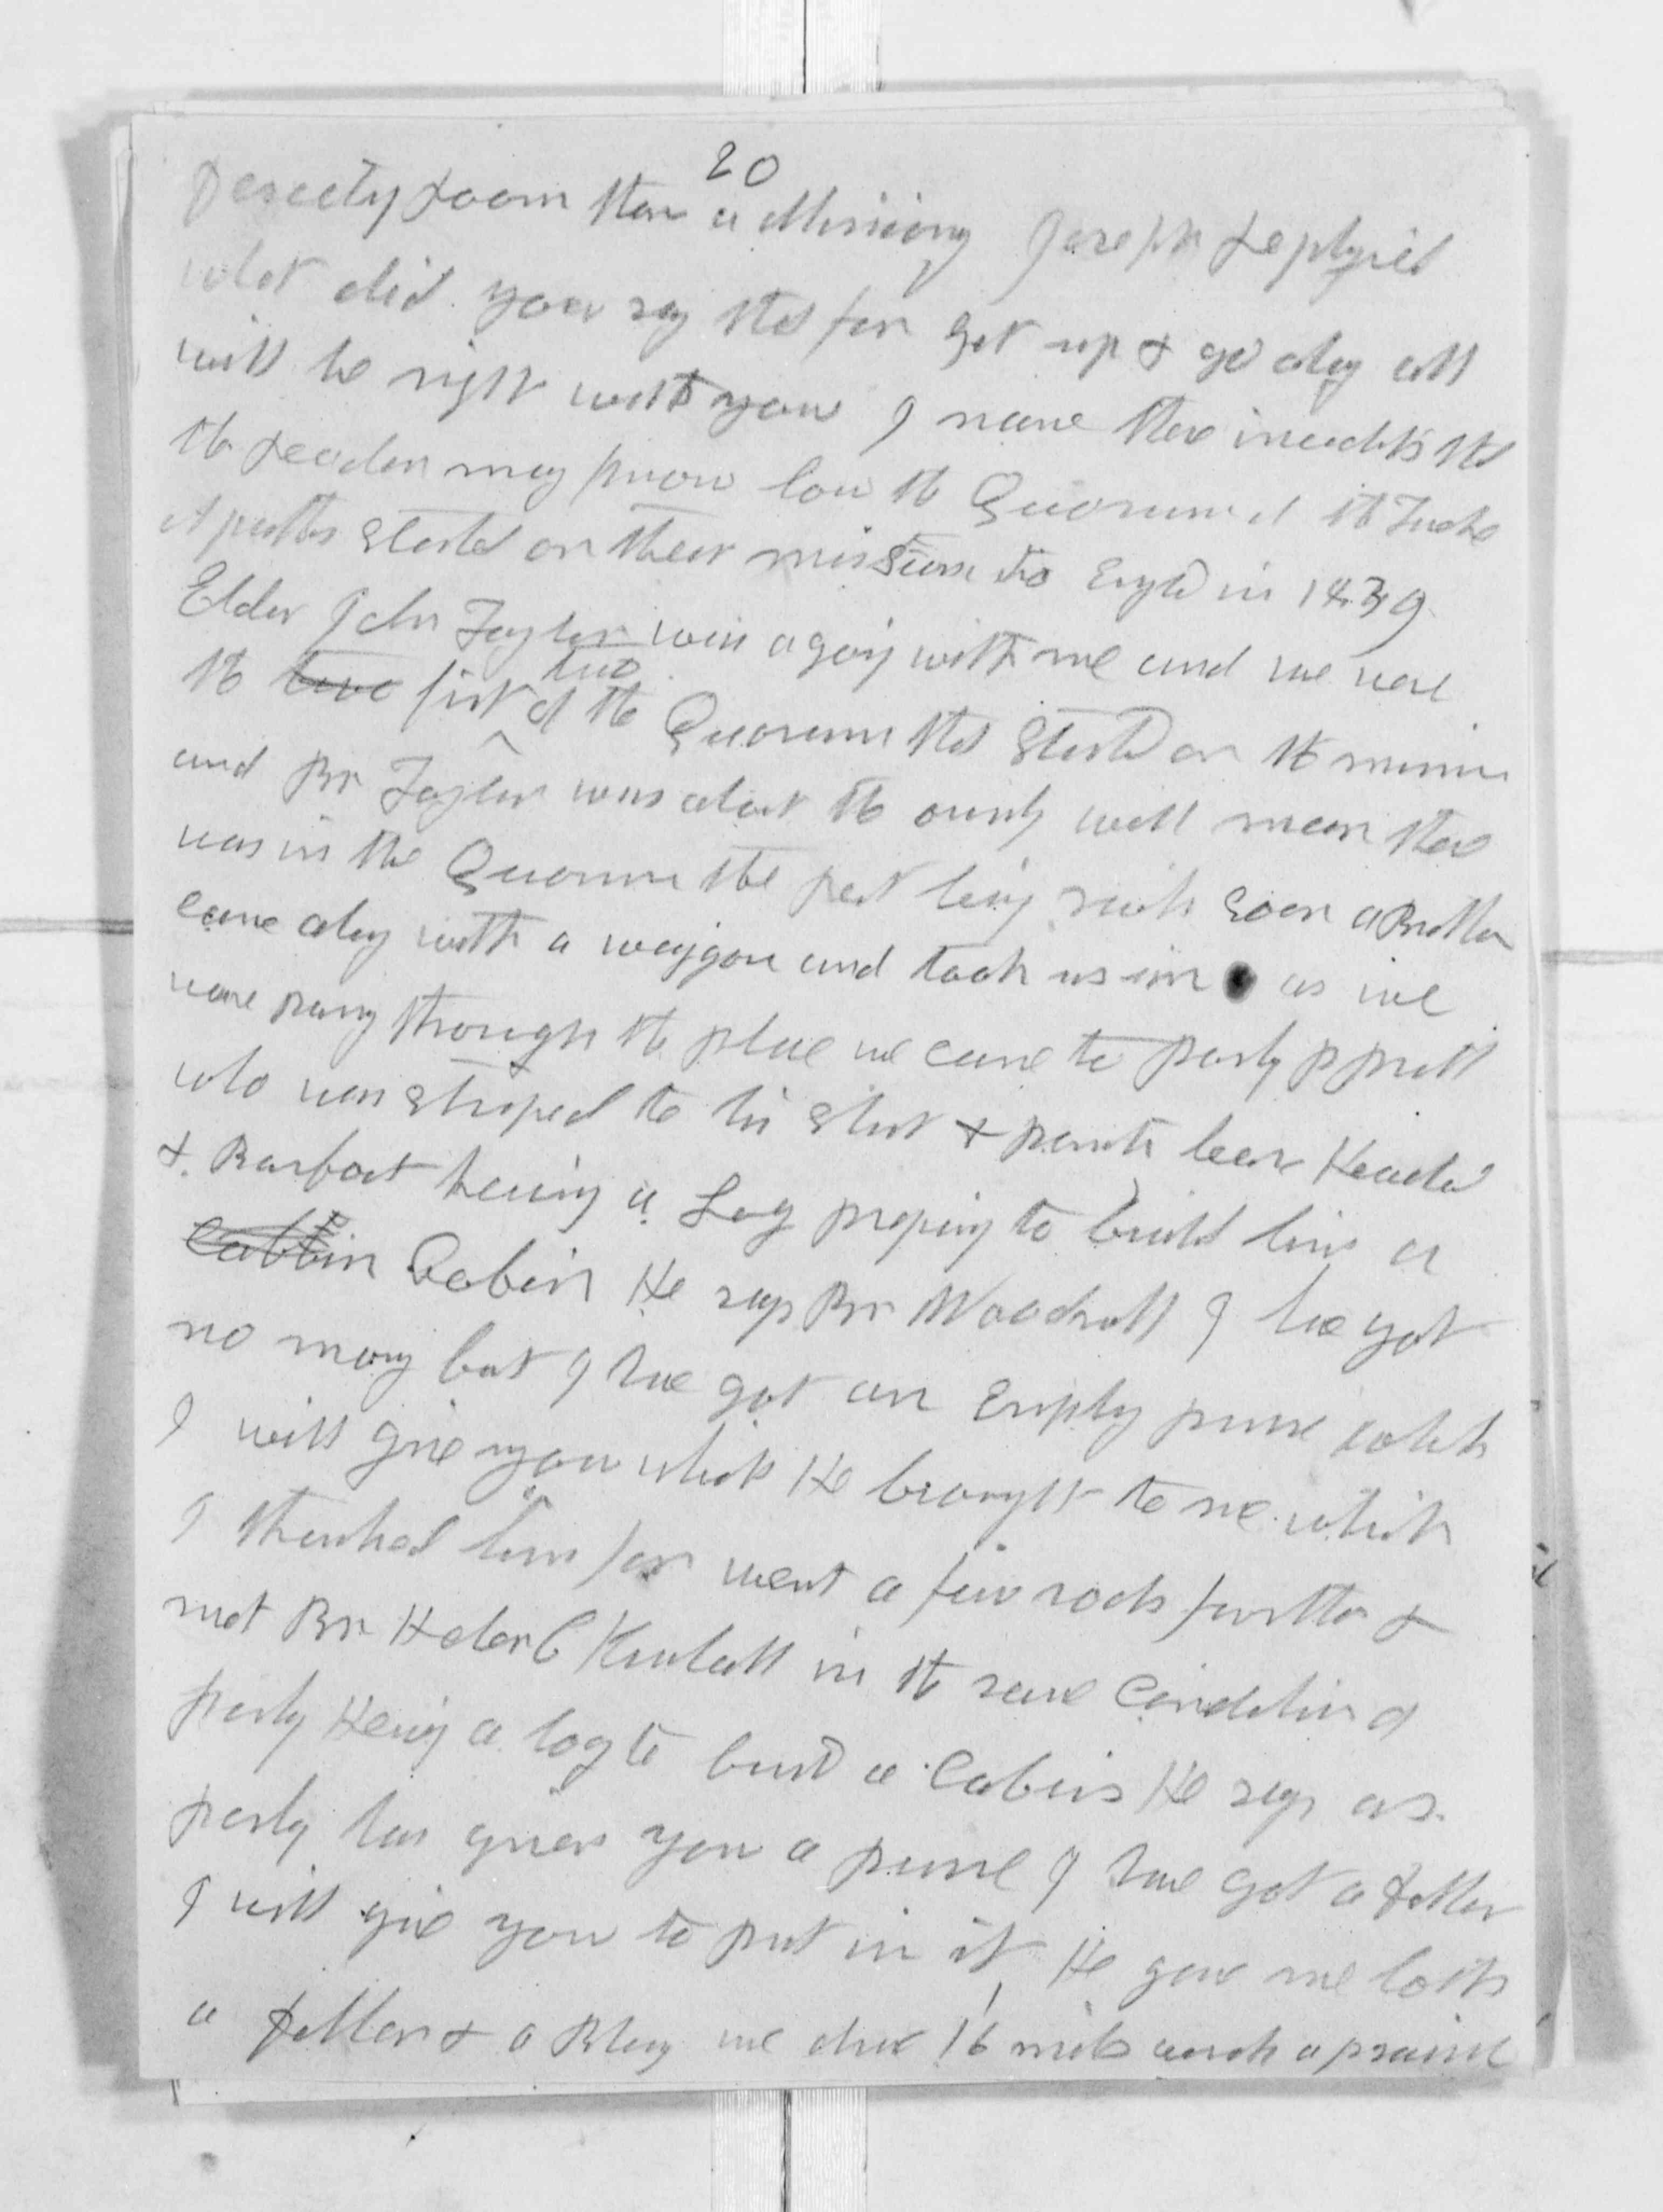 20
Desecty Room than a Missiony Joseph Replyied
what did you say that for get up & go alog all
will be right with you I name these incedets that
the Reader may know how the Quorum of the Twelve
Apostles Started on their mission to Engld in 1839
Elder John Taylor was agoing with me and we were
the two first two of the Quorum that Started on the mission
and Br Taylor was about the ounly well man there
was in the Quorum the rest being sick Soon a Brother
came alog with a waggon and took us in as we
ware passing through the place we came to Parly P Pratt
who was striped to his shirt & pants bear Headed
& Barfoot hewing a Log preparing to build him a
Cabbin Cabin He says Br Woodruff I have got
no mony but I have got an Empty purse which
I will give you which He brought to me which
I thanked him for went a few rods further &
met Br Heber C Kimball in the same Condition as
Parly Hewing a log to build a Cabin He says as
Parly has given you a purse I have got a dollar
I will give you to put in it He gave me both
a dollar & a Blessing we drove 16 miles across a prairie